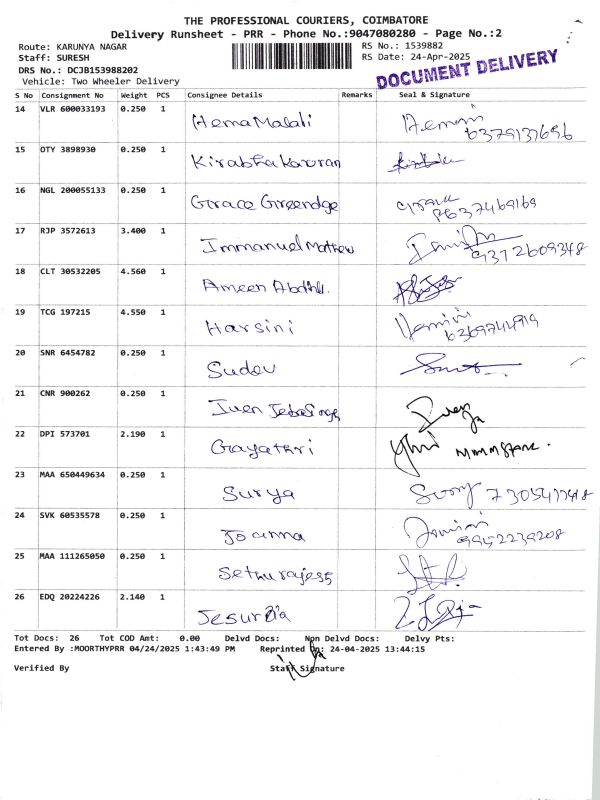 THE PROFESSIONAL COURIERS, COIMBATORE
Delivery Runsheet - PRR - Phone No.:9047080280 - Page No.:2
Route: KARUNYA NAGAR RS No.: 1539882
Staff: SURESH RS Date: 24-Apr-2025
DRS No.: DCJB153988202
Vehicle: Two Wheeler Delivery
DOCUMENT DELIVERY
S No Consignment No Weight PCS Consignee Details Remarks Seal & Signature
14 VLR 600033193 0.250 1 HemaMalali
15 OTY 3898930 0.250 1
16 NGL 200055133 0.250 1 Grace Greendge 8637469169
17 RJP 3572613 3.400 1 Immanuel Mathew 9312609348
18 CLT 30532205 4.560 1 Ameen
19 TCG 197215 4.550 1 Harsini 6369744919
20 SNR 6454782 0.250 1 Sudev
21 CNR 900262 0.250 1 Iven
22 DPI 573701 2.190 1 Gayathri
23 MAA 650449634 0.250 1 Surya
24 SVK 60535578 0.250 1 Joanna 9952239208
25 MAA 111265050 0.250 1
26 EDQ 20224226 2.140 1
Tot Docs: 26 Tot COD Amt: 0.00 Delvd Docs: Non Delvd Docs: Delvy Pts:
Entered By :MOORTHYPRR 04/24/2025 1:43:49 PM Reprinted On: 24-04-2025 13:44:15
Verified By Staff Signature